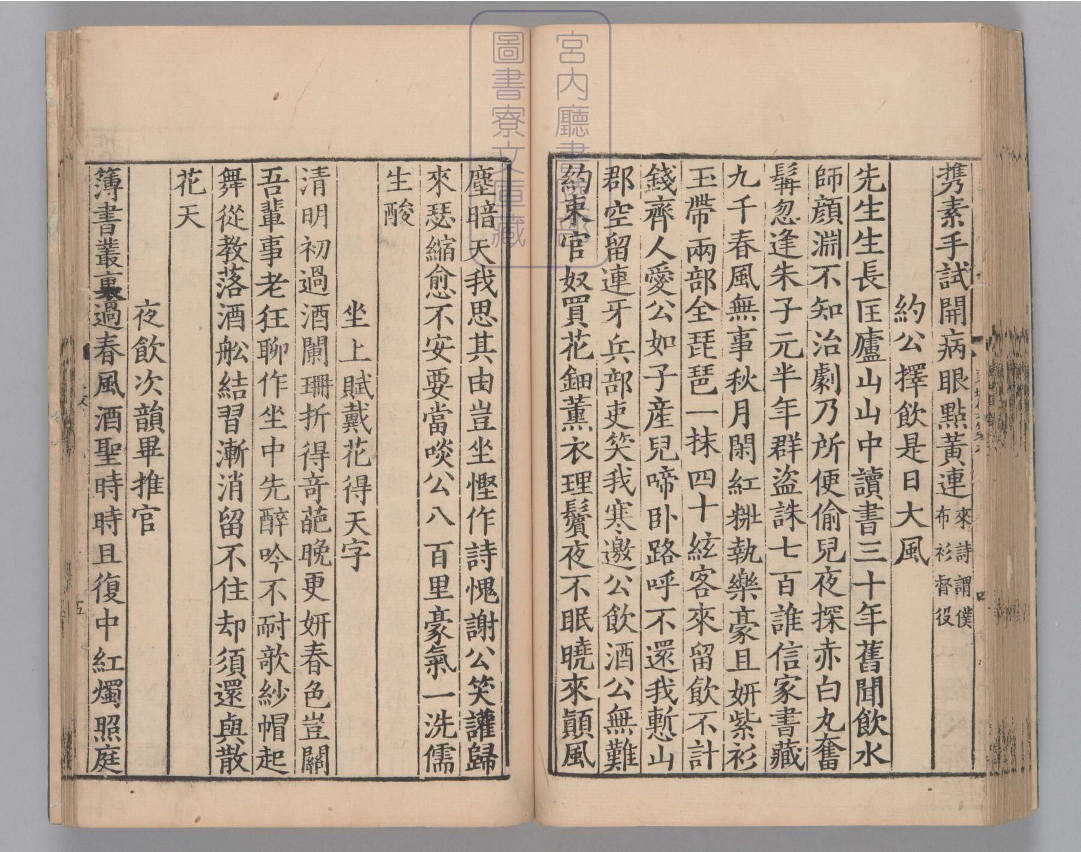 宮內廳書陵部
圖書寮文庫藏
携素手試開病眼點黃連
來詩謂僕
布衫督役
約公擇飲是日大風
先生生長匡廬山山中讀書三十年舊聞飲水
師顔淵不知治劇乃所便偷兒夜探赤白丸奮
髯忽逢朱子元半年群盜誅七百誰信家書藏
九千春風無事秋月閑紅粧執樂豪且妍紫衫
玉帶兩部全琵琶一抹四十絃客來留飲不計
錢齊人愛公如子產兒啼卧路呼不還我慙山
郡空留連牙兵部吏笑我寒邀公飲酒公無難
約束官奴買花鈿薰衣理鬢夜不眠曉來顛風
塵暗天我思其由豈坐慳作詩愧謝公笑讙歸
來瑟縮愈不安要當啖公八百里豪氣一洗儒
生酸
坐上賦戴花得天字
清明初過酒闌珊折得奇葩晚更妍春色豈關
吾輩事老狂聊作坐中先醉吟不耐歌紗帽起
舞從教落酒舩結習漸消留不住却須還與散
花天
夜飲次韻畢推官
簿書叢裏過春風酒聖時時且復中紅燭照庭
五